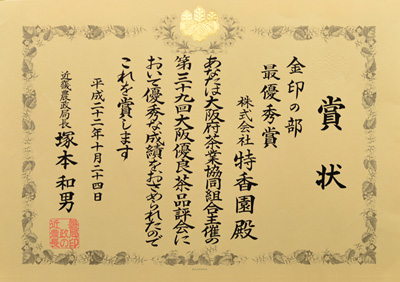 賞状
金印の部
最優秀賞
株式会社 特香園 殿
あなたは大阪府茶業協同組合主催の
第三十九回大阪優良茶品評会に
おいて優秀な成績をおさめられたので
これを賞します
平成二十二年十月二十四日
近畿農政局長
塚本和男